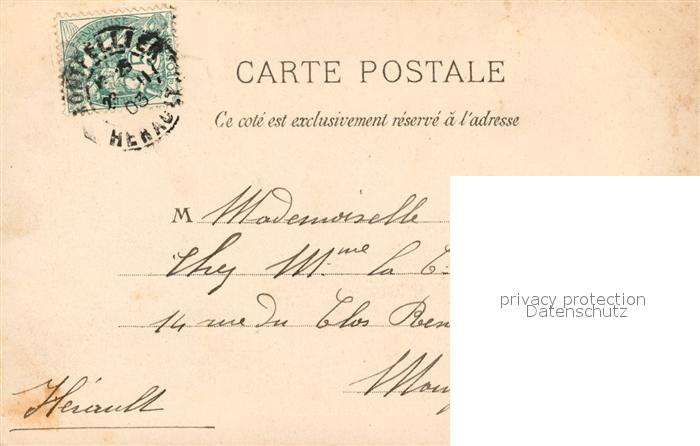 MONTPELLIER
03
HERAULT
CARTE POSTALE
Ce coté est exclusivement réservé à l'adresse
M Mademoiselle
Chez Mme la C
14 rue du Clos Ren
Mon
Hérault
privacy protection
Datenschutz